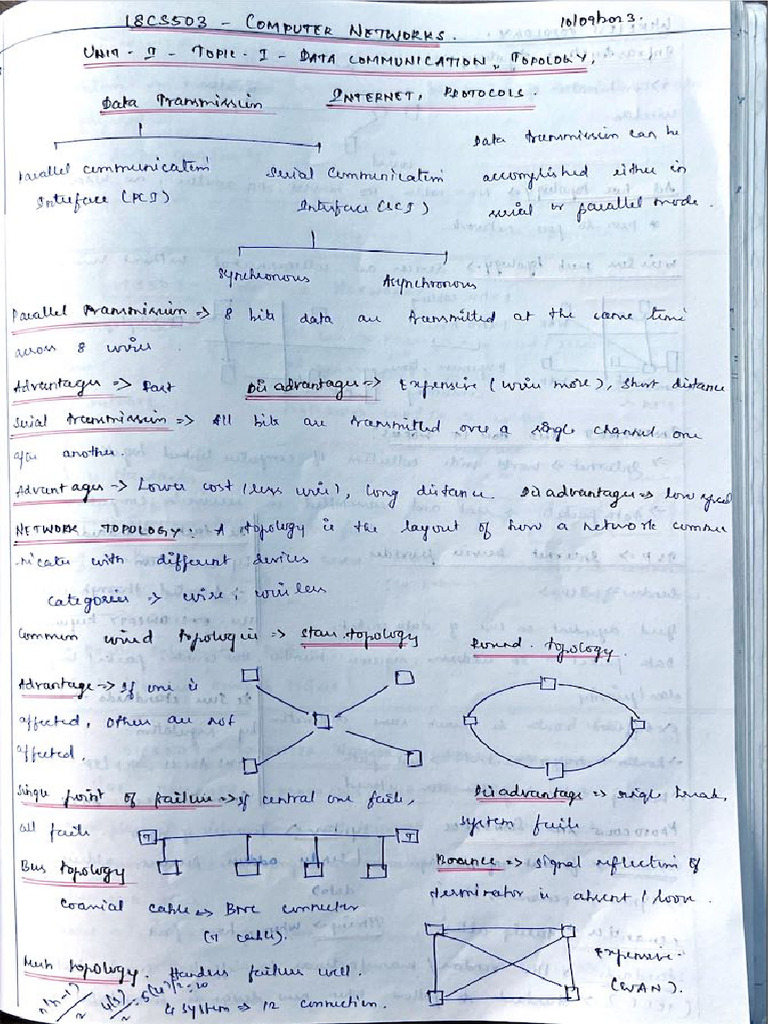 18CS503 - COMPUTER NETWORKS.
10/09/2023.
UNIT - II - TOPIC - I - DATA COMMUNICATION, TOPOLOGY,
INTERNET, PROTOCOLS.
Data Transmission
Data transmission can be
Parallel communication
Serial Communication
accomplished either in
Interface (PCI)
Interface (SCI)
serial or parallel mode.
Synchronous
Asynchronous
Parallel Transmission => 8 bits data are transmitted at the same time
across 8 wires.
Advantages => Fast
Disadvantages => Expensive (wires more), Short distance
Serial transmission => All bits are transmitted over a single channel one
after another.
Advantages -> Lower cost (less wire), long distance. Disadvantages => low speed
NETWORK TOPOLOGY: A topology is the layout of how a network commu
nicates with different devices
Categories => wire, wireless
Common wired topologies => Star topology
Round topology.
Advantage => If one is
affected, others are not
affected.
Single point of failure => if central one fails,
all fails
Disadvantage => single break,
system fails
T
T
Bus topology
Bounce => signal reflection if
terminator is absent / loose.
Coaxial cable => BNC connector
(T cables).
Mesh topology. Handles failure well.
Expensive.
(WAN).
n(n-1)/2
4(3)/2
= 5(4)/2 = 10
4 system => 12 connection.